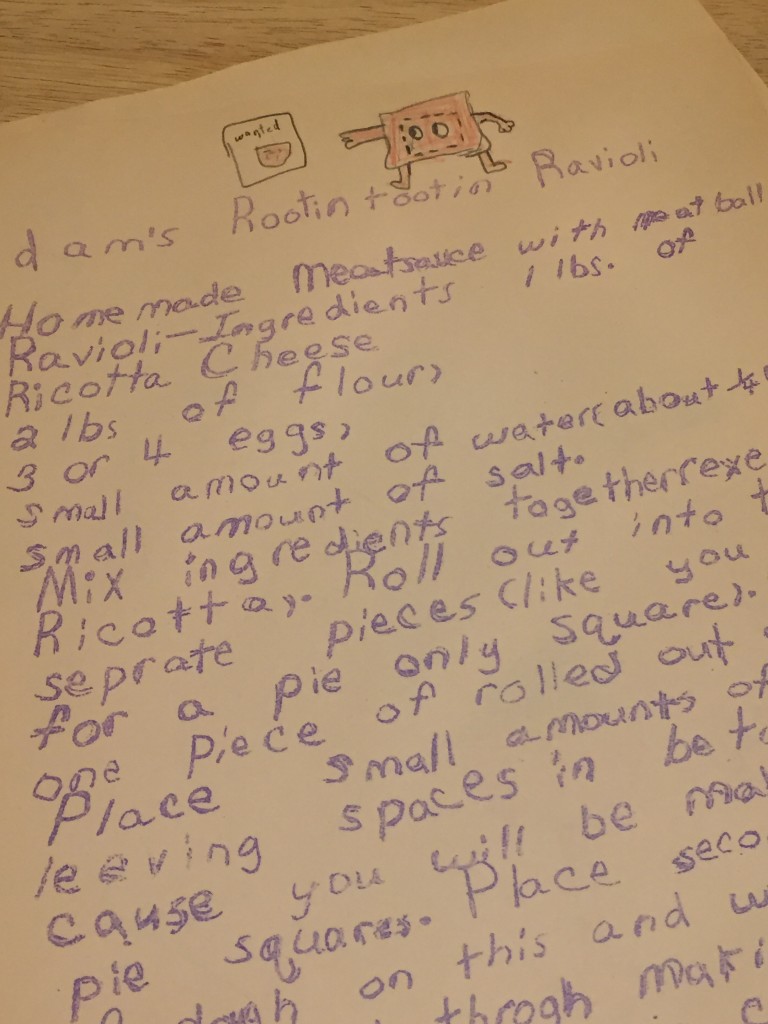 wanted
dam's Rootin tootin Ravioli
Home made Meatsauce with meat ball
Ravioli-Ingredients 1 lbs. of
Ricotta Cheese
2 lbs of flour,
3 or 4 eggs,
small amount of water(about
small amount of salt.
Mix ingredients together(exe
Ricotta). Roll out into
seprate pieces(like you
for a pie only square).
one piece of rolled out
Place small amounts of
leeving spaces in be
cause you will be mak
pie squares. Place seco
on this and
throgh maki